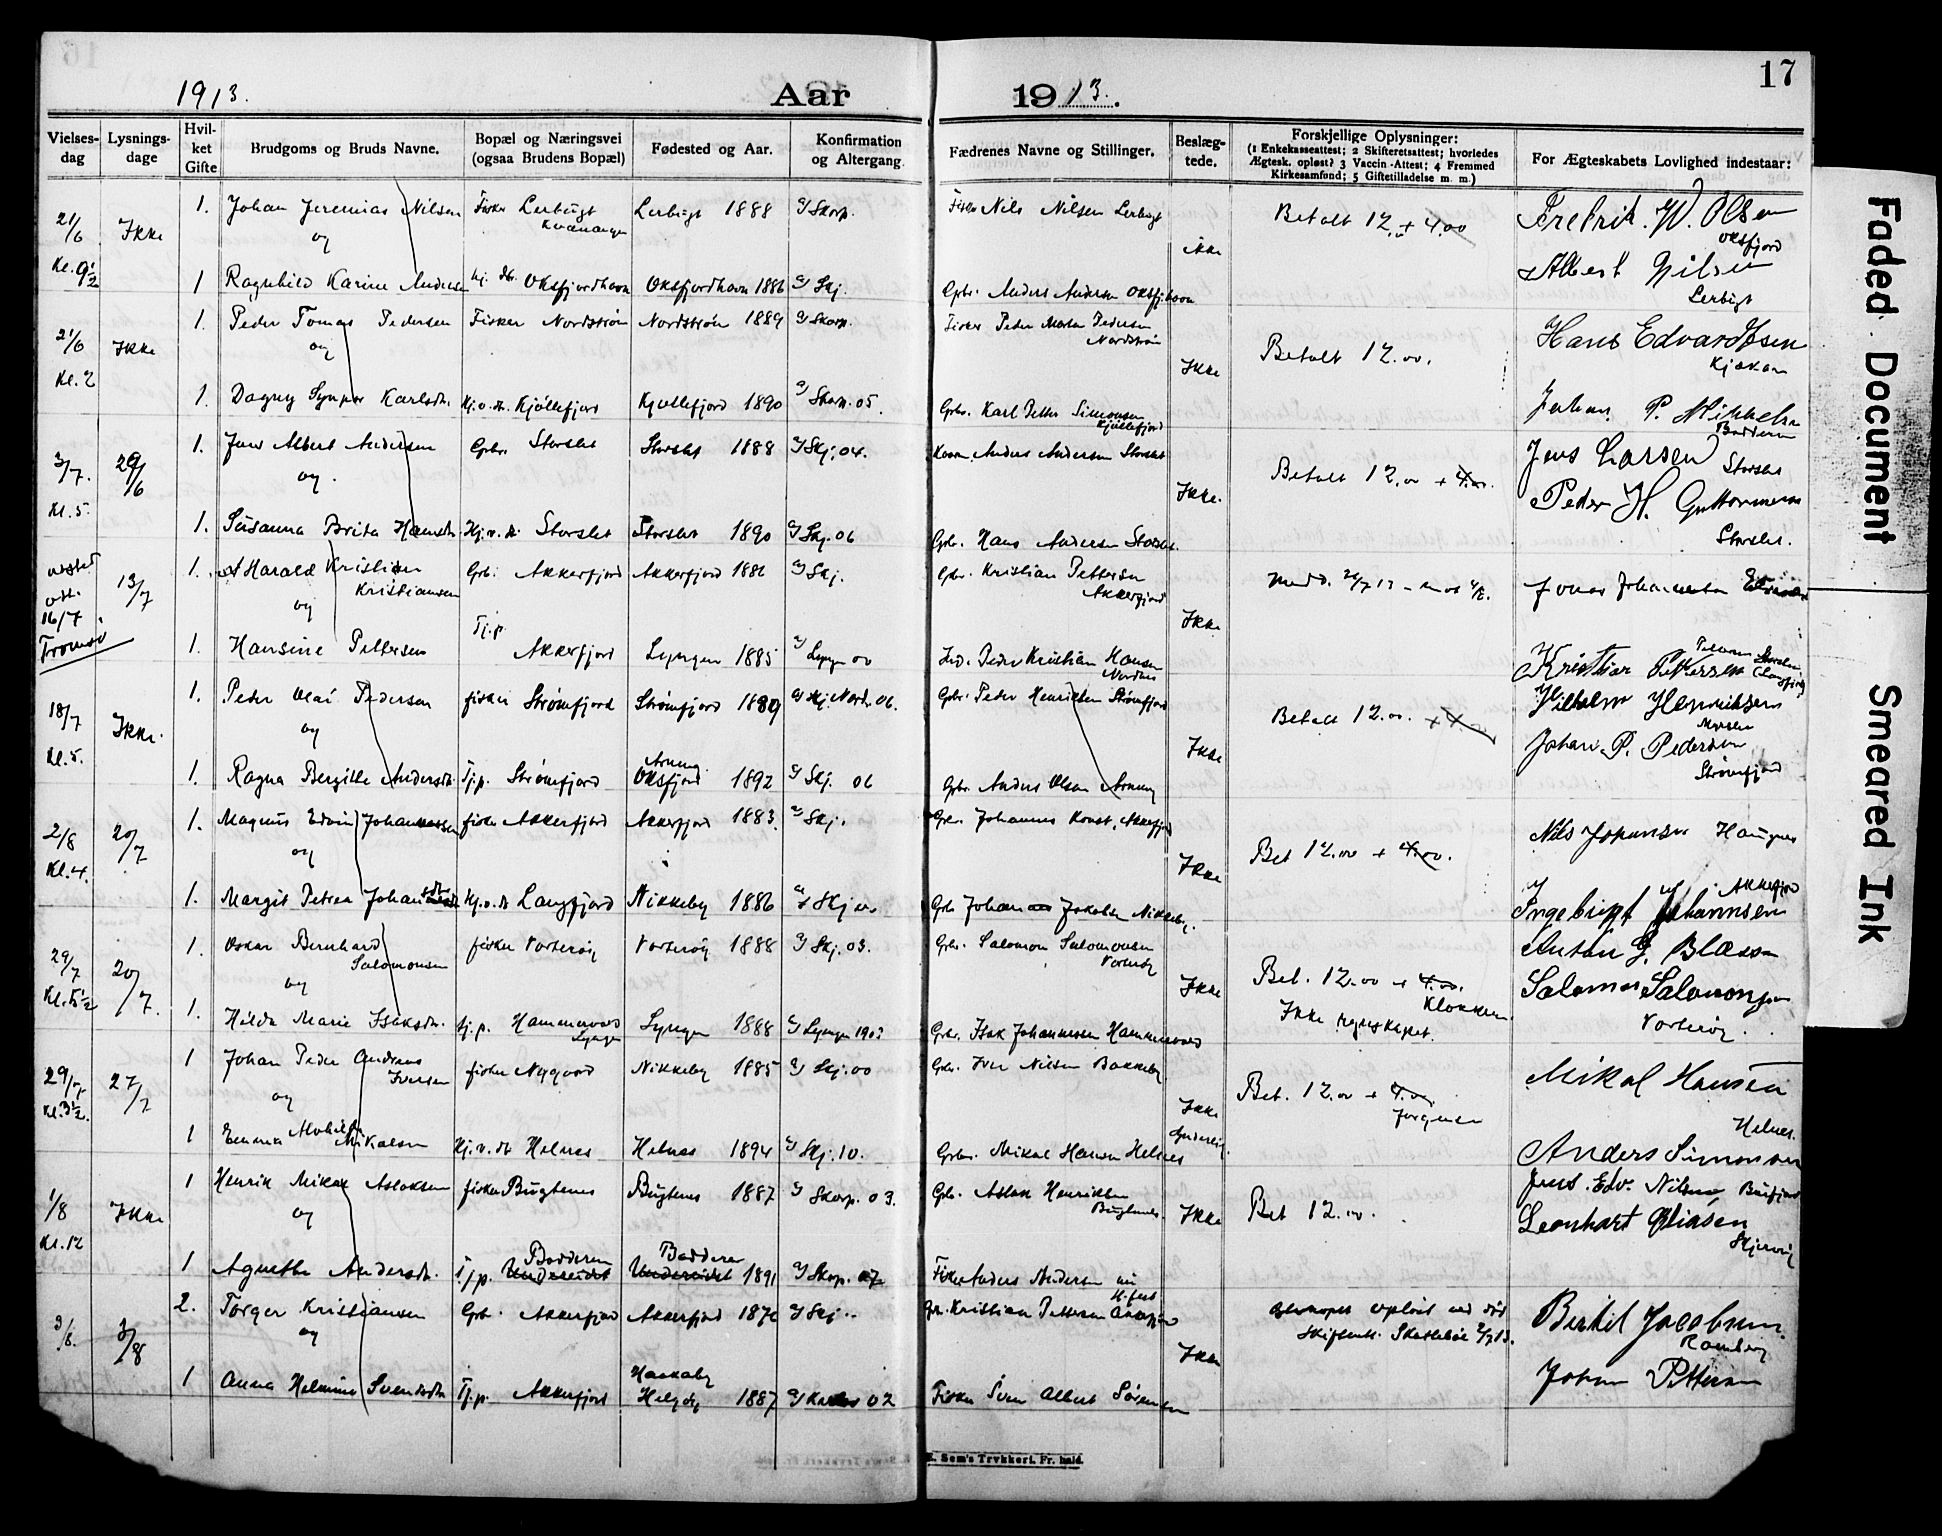 17
1913.
Aar
1913.
Vielses-dag
Lysnings-dage
Hvil-ket Gifte
Brudgoms og Bruds Navne.
Bopæl og Næringsvei (ogsaa Brudens Bopæl)
Fødested og Aar.
Konfirmation og Altergang.
Fædrenes Navne og Stillinger.
Beslæg-tede.
Forskjellige Oplysninger: (1 Enkekasseattest; 2 Skifteretsattest; hvorledes Ægtesk. opløst? 3 Vaccin-Attest; 4 Fremmed Kirkesamfond; 5 Giftetilladelse m. m.)
For Ægteskabets Lovlighed indestaar:
21/6 Kl. 9 1/2 Ikke 1. Johan Jeremias Nilsen Fisker Lerbugt Kvænangen Lerbugt 1888 Skorp. Fisker Nils Nilsen Lerbugt Betalt 12. + 4.00 Fredrik. W. Olsen
og ikke Oksfjord
1 Ragnhild Karine Andersen Oksfjordhavn Oksfjordhavn 1886 Skj. Gbr. Anders Andersen Albert Nilsen Lerbugt
21/6 Kl. 2 Ikke 1. Peder Tomas Pedersen Fisker Nordstrøm Nordstrøm 1889 Skorp. Fisker Peder Pedersen Nordstrøm Betalt 12.00. Hans Edvardsen
og Ikke Kjækan
1. Dagny Karlsdtr. Kjøllefjord Kjøllefjord 1890 Skorp. 05. Gbr. Karl Petter Simonsen Kjøllefjord Johan P. Mikkelsen Badderen
3/7. Kl. 5. 29/6 1. Jens Albert Andersen Gbr. Storslet Storslet 1888 Skj. 04. Anders Andersen Storslet Betalt 12.00 + 4.00. Jens Larsen Storslet
og. Ikke. Peder H. Guttormsen
1. Susanna Brita Hansdtr Hj.v.dr. Storslet Storslet 1890 Skj. 06 Gbr. Hans Andersen Storslet. Storslet.
16/7 Tromsø 13/7 1. Harald Kristian Kristiansen Gbr. Akkerfjord Akkerfjord 1886 Skj. Gbr. Kristian Pettersen Akkerfjord
og Ikke
1. Hansine Pettersen Tj.p. Akkerfjord Lyngen 1885 Lyngen 00 Peder Kristian Hansen Kristian Pettersen
18/7 Kl. 5. Ikke. 1. Peder Olai Pedersen fisker Strømfjord Strømfjord 1889 Skj. Nord. 06. Gbr. Peder Henriksen Strømfjord Betalt 12.00. + 4.00 Vilhelm Henriksen
og Ikke
1. Ragna Bergitte Andersdtr. Tj.p. Strømfjord Arnung. Oksfjord 1892 Skj. 06 Gbr. Anders Olsen Arnung Johan P. Pedersen Strømfjord
2/8 Kl. 4. 20/7 1. Magnus Edvin Johannessen fisker Akkerfjord Akkerfjord 1883. Skj. Gbr. Johannes Akkerfjord Bet 12.00 + 4.00. Nils Johansen Haugnes
og Ikke Akkefjord
1. Margit Petrea Johansdtr Hj.v.dr Langfjord Nikkeby 1886 Skj. Gbr Johan Jakobsen Nikkeby. Ingebrigt Johannsen
29/7 Kl. 5 1/2 20/7. 1. Oskar Bernhard Salomonsen fisker Vorterøy Vorterøy 1888 Skj. 03. Gbr. Salomon Salomonsen Vorterøy Bet. 12.00 + 4.00. Klokkeren Anton G. Blæsen
og Ikke Ikke Salomon Salomonsen
1. Hilda Marie Isaksdtr. tj.p. Hammervoll Lyngen Lyngen 1888 Lyngen 1903 Gbr. Isak Johannessen Hammervoll Vorterøy.
29/7 Kl. 3 1/2. 27/7 1 Johan Peder Andreas Iversen fisker Nygaard Nikkeby 1885 Skj. 00 Gbr. Iver Nilsen Bakkeby Bet. 12.00 + 4.00. Jorgensen Mikal Hansen
og Ikke Helnes.
1 Emma Mikalsen Hj.v.dr Helnes Helnes 1894 Skj. 10. Gbr. Mikal Hansen Helnes Anders Simonsen
1/8 Kl. 12 Ikke 1 Henrik Mikal Aslaksen fisker Bugtenes Bugtenes 1887 Skorp. 03. Gbr. Aslak Henriksen Bugtenes Ikke Bet 12.00. Jens. Edv. Nilsen Burfjord
og Leonhart Eliasen Skjervøy
1 Agnethe Andersdtr. Tj.p. Badderen Undereidet Badderen Undereidet 1891 Skorp. 07 Fisker Anders Andersen
3/8. 3/8 2. Torger Kristiansen Gbr. Akkerfjord Akkerfjord 1876 Skj. Gbr. Kristian Pettersen opløst ved død Bertil Jacobsen.
og Ikke
1 Anna Helmine Svendsdtr Tj.p. Akkerfjord Helgøy 1887 Karlsø 02 Fisker Sven Albert Sørensen Johan Pettersen
E. Sem's Trykkeri, Fr.hald.
Faded Document
Smeared Ink